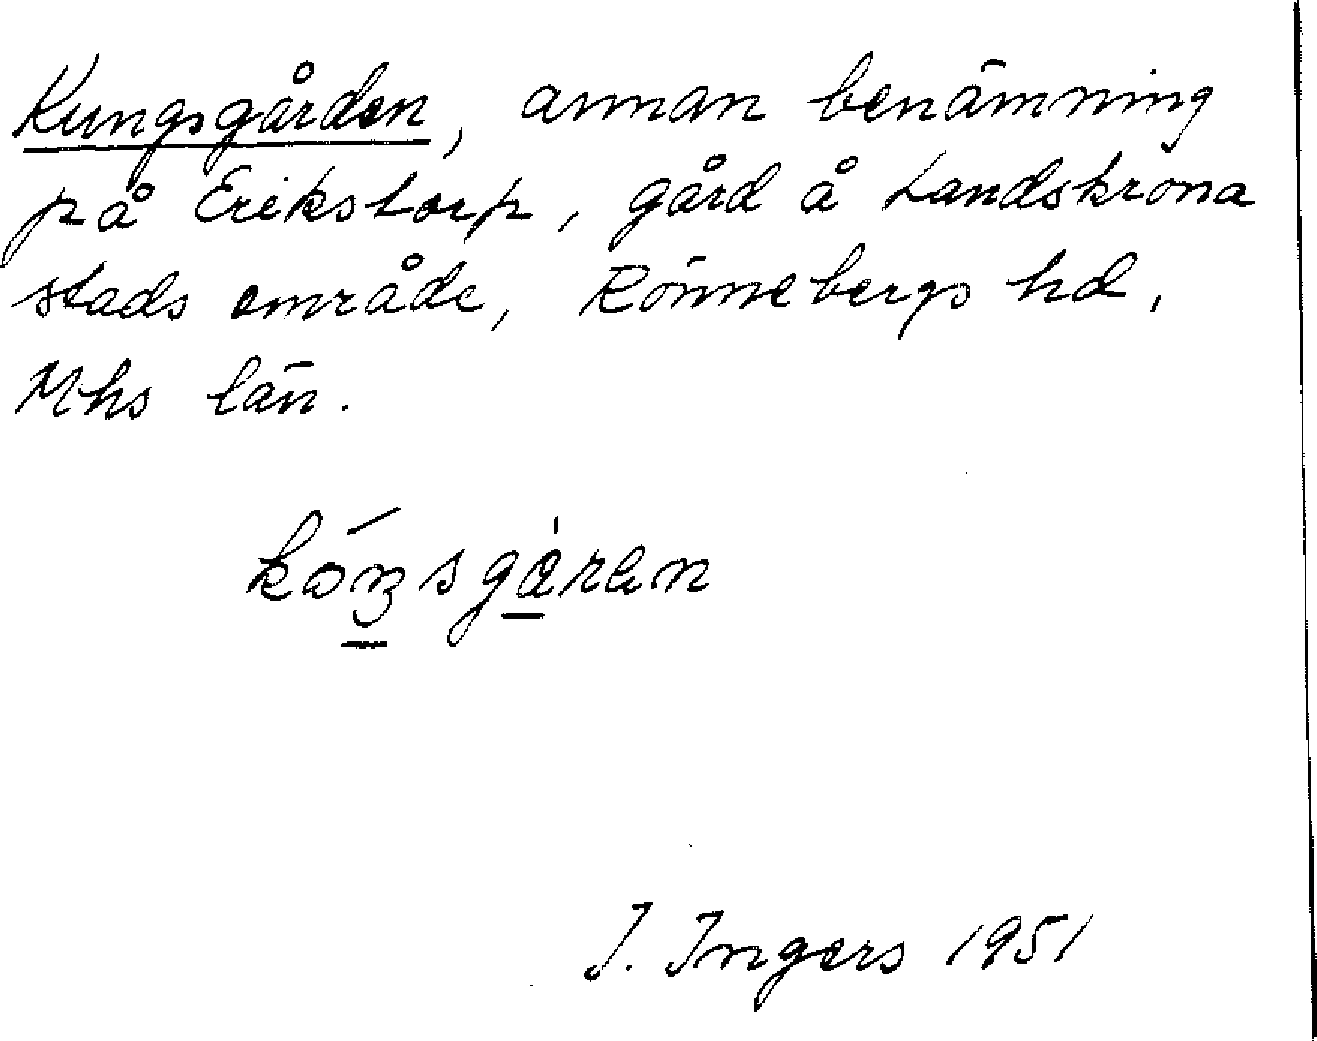 Kungsgården, annan benämning
på Erikstorp, gård å Landskrona
stads område, Rönnebergs hd,
Mhs län.
kóŋsgàren
I. Ingers 1951